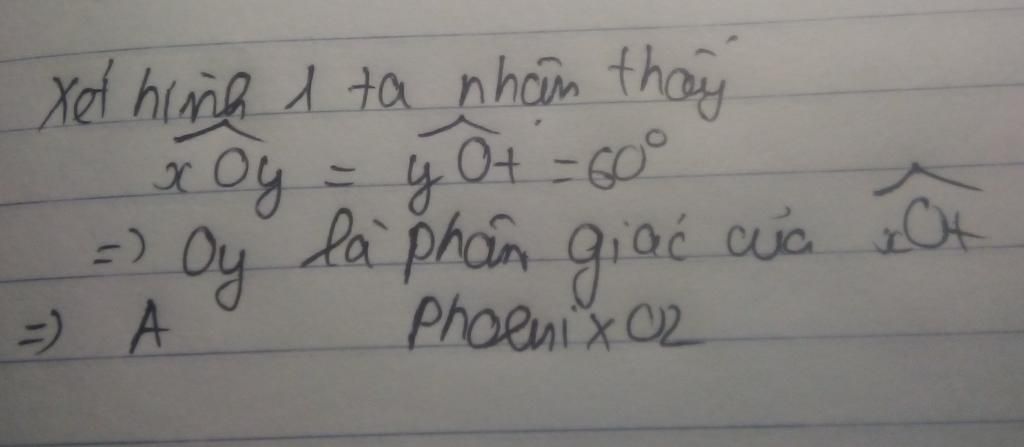 Xét hình 1 ta nhận thấy
$\widehat{xOy} = \widehat{yOt} = 60^0$
=> Oy là phân giác của $\widehat{xOt}$
=> A Phoenix02